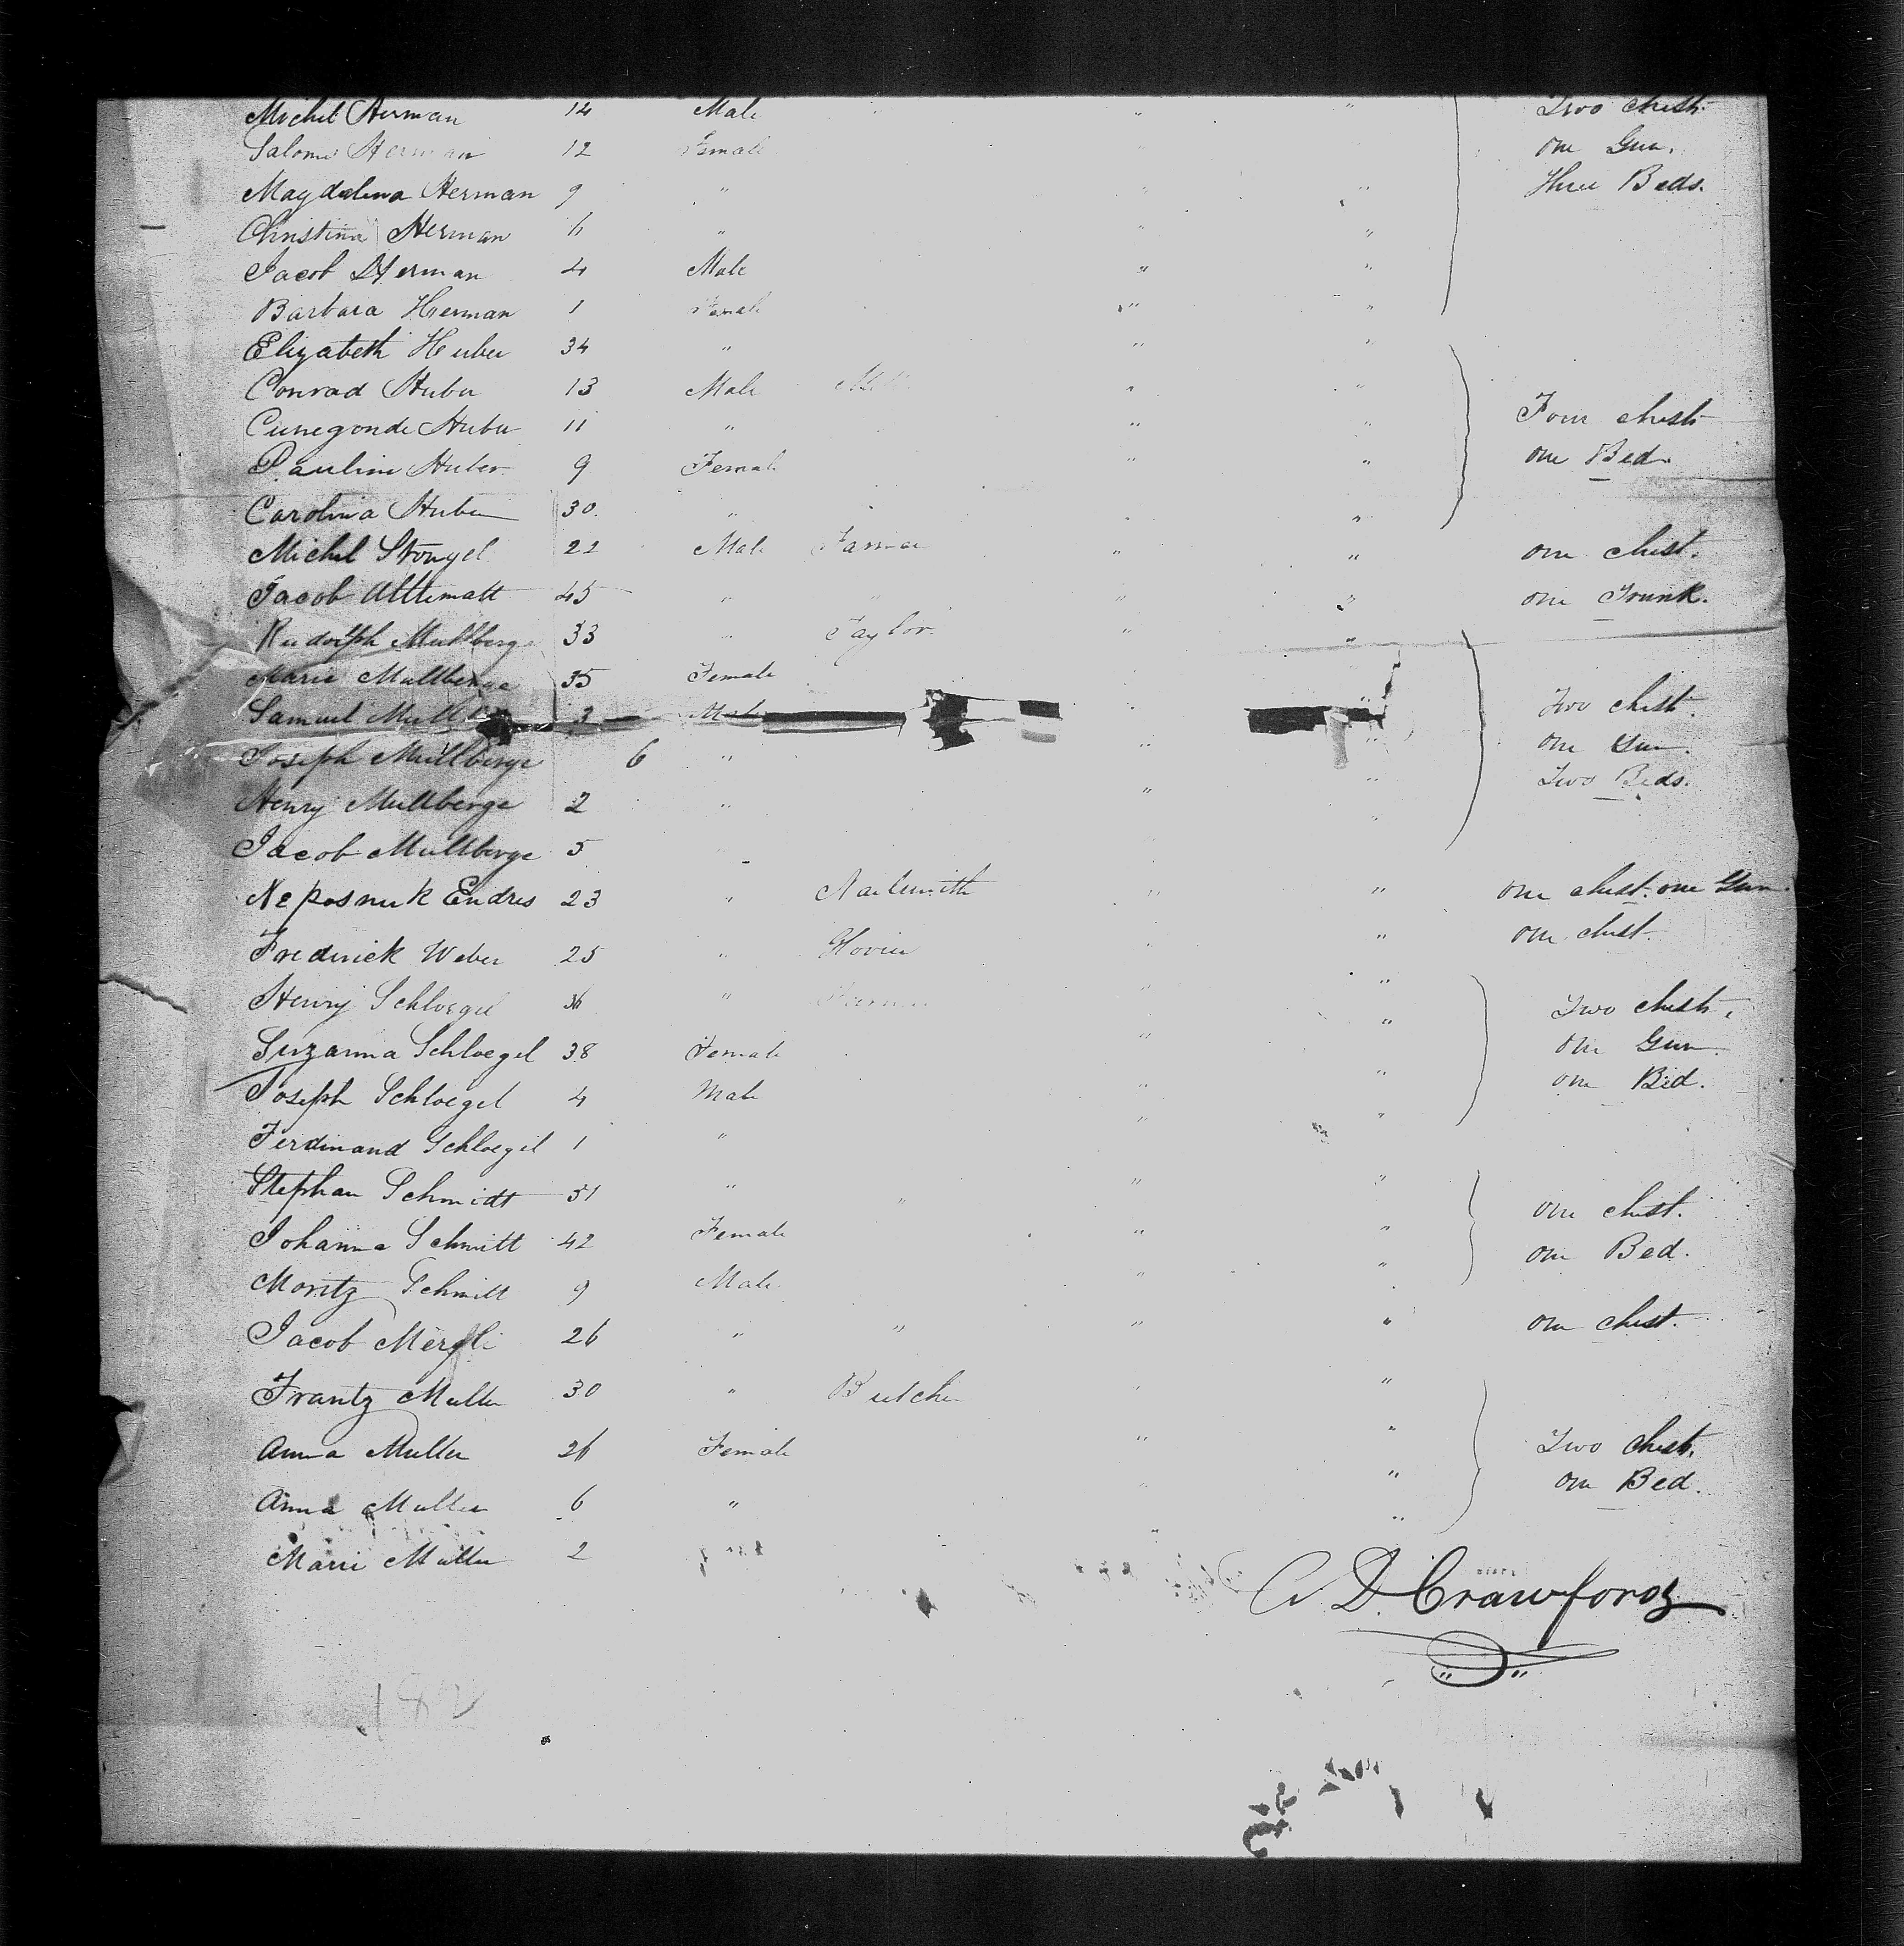 Michel Herman 14 Male " " Two chests.
Salome Herman 12 Female one Gun.
Magdalena Herman 9 " " " three Beds.
Christina Herman 6 " " "
Jacob Herman 4 Male " "
Barbara Herman 1 Female " "
Elizabeth Huber 34 " " "
Conrad Huber 13 Male " "
Cunegonde Huber 11 " " " Four chests
Pauline Huber 9 Female " " one Bed.
Carolina Huber 30 " " "
Michel Stongel 22 Male Farmer " " one chest.
Jacob Alttematt 45 " " " " one Trunk.
Rudolph Mullberge 33 " Taylor. " "
Marie Mullberge 35 Female "
Samuel 3 Male " Two chest.
Joseph Mullberge 6 " " " one Gun.
Henry Mullberge 2 " " " Two Beds.
Jacob Mullberge 5 "
Endres 23 " Nailsmith " " one chest. one Gun.
Frederick Weber 25 " " " one chest.
Henry Schloegel 36 " Farmer " " Two chests,
Suzanna Schloegel 38 Female " " one Gun.
Joseph Schloegel 4 Male " " one Bed.
Ferdinand Schloegel 1 " " "
Stephan Schmidt 51 " " " " one chest.
Johanna Schmitt 42 Female " " one Bed.
Moritz Schmitt 9 Male " "
Jacob 26 " " " " one chest.
Frantz Muller 30 " Butcher " "
Anna Muller 26 Female " " Two chests,
Anna Muller 6 " " " one Bed.
Marie Muller 2 " "
D. Crawford
182